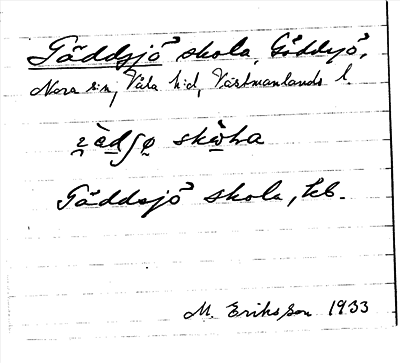 Gäddsjö skola, Gäddsjö,
Nora s:n, Våla h:d, Västmanlands l.
skola
Gäddsjö skola, kb.
M. Eriksson 1933